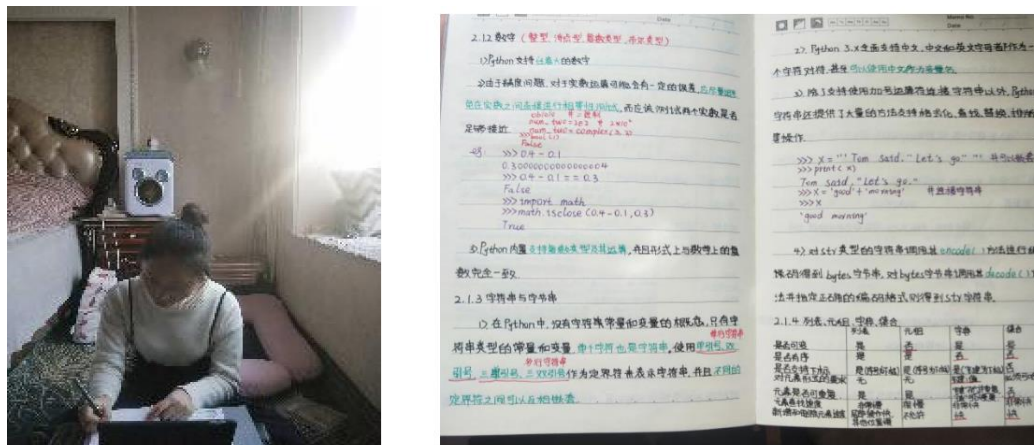 2.1.2 数字 (整型、浮点型、复数类型、布尔类型)
1) Python 支持任意大的数字
2) 由于精度问题, 对于实数运算可能会有一定的误差, 应尽量避免
在实数之间直接进行相等性测试, 而应该测试两个实数是否
足够接近
num_two = complex(3,2)
False
>>> 0.4 - 0.1
0.30000000000000004
>>> 0.4 - 0.1 == 0.3
False
>>> import math
>>> math.isclose (0.4 - 0.1, 0.3)
True
3) Python 内置支持复数类型及其运算, 并且形式上与数学上的复
数完全一致.
2.1.3 字符串与字节串
1) 在 Python 中, 没有字符常量和变量的概念, 只有字
符串类型的常量和变量, 单个字符也是字符串, 使用单引号、双
引号、三单引号、三双引号作为定界符来表示字符串, 并且不同的
定界符之间可以互相嵌套.
2) Python 3.x 全面支持中文, 中文和英文字母都作为一
个字符对待, 甚至可以使用中文作为变量名.
3) 除了支持使用加号运算符连接字符串以外, Python
字符串还提供了大量的方法支持格式化、查找、替换、排版
等操作.
>>> X = ''' Tom said, "Let's go" '''
>>> print( X )
Tom said, "Let's go."
>>> X = 'good' + 'morning' #连接字符串
>>> X
'good morning'
4) 对 str 类型的字符串调用其 encode( ) 方法进行编
码得到 bytes 字节串, 对 bytes 字节串调用其 decode( )
法并指定正确的编码格式则得到 str 字符串.
2.1.4 列表、元组、字典、集合
列表 元组 字典 集合
是否可变 是 否 是 是
是否有序 是 是 否 否